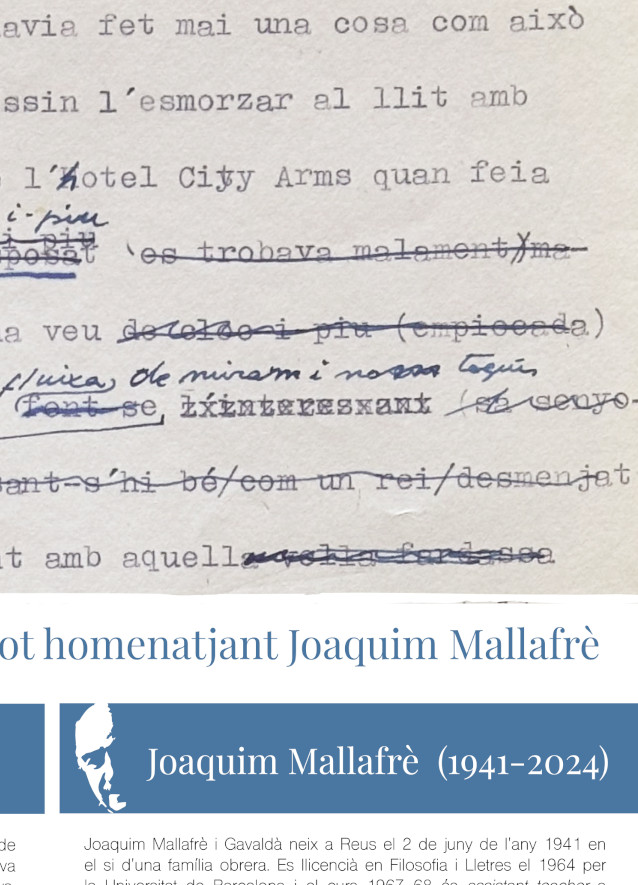 avia fet mai una cosa com això
ssin l'esmorzar al llit amb
l'hotel City Arms quan feia
i-piu
i piu
posat 'es trobava malament)ma-
a veu de toldo i piu (empiocada)
fluixa, de mira'm i no
font se, interessant senyo-
sant-s'hi bé/com un rei/desmenjat
t amb aquella vella fardassa
ot homenatjant Joaquim Mallafrè
Joaquim Mallafrè (1941-2024)
de
va
Joaquim Mallafrè i Gavaldà neix a Reus el 2 de juny de l'any 1941 en
el si d'una família obrera. Es llicencià en Filosofia i Lletres el 1964 per
la Universitat de Barcelona i el curs 1967-68 és assistant teacher a